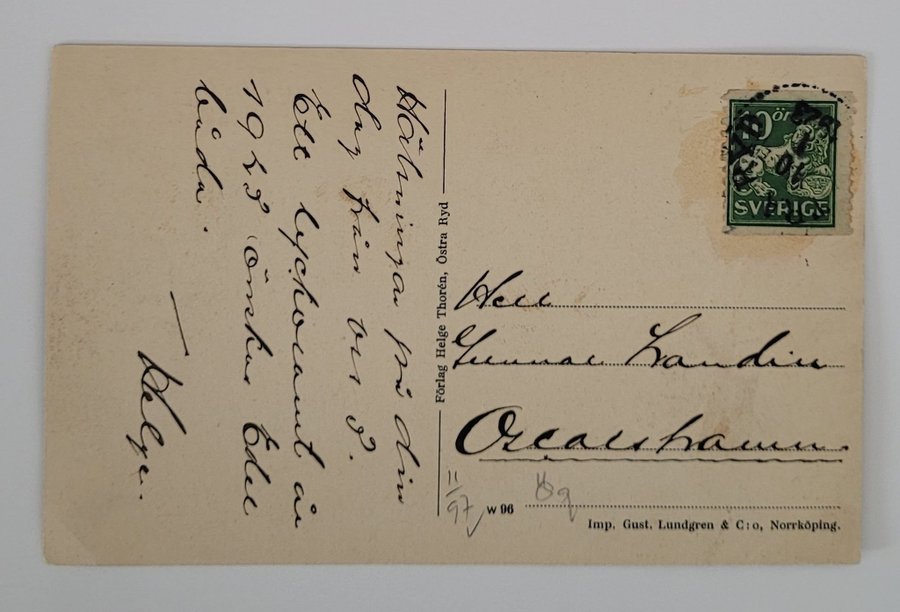 Hälsningar på din
dag från oss 3.
Ett lyckosamt år
1923 önskar Eder
båda.
— Helge.
Förlag Helge Thorén, Östra Ryd
10 ör
SVERIGE
Herr
Gunnar Landin
Oscarshamn.
11/97
w 96
Imp. Gust. Lundgren & C:o, Norrköping.